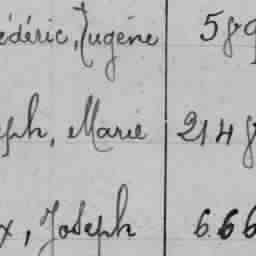 édéric, Eugène 589
eph, Marie 2148
x, Joseph 666